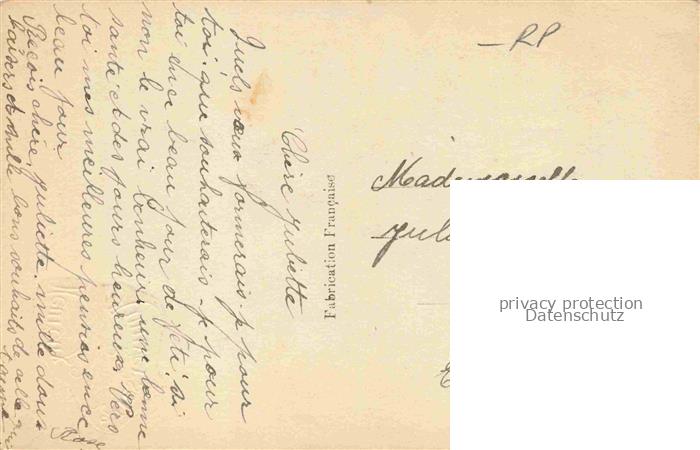 Chère Juliette
Quels vœux formerais-je pour
toi, que souhaiterais-je pour
toi en ce beau jour de fête, si
non le vrai bonheur, une bonne
santé et des jours heureux. Vers
toi mes meilleures pensées en ce
beau jour
Reçois chère Juliette mille doux
baisers et mille bons souhaits de celle qui
t'aime
Rose
Fabrication Française
RP
Mademoiselle
privacy protection
Datenschutz